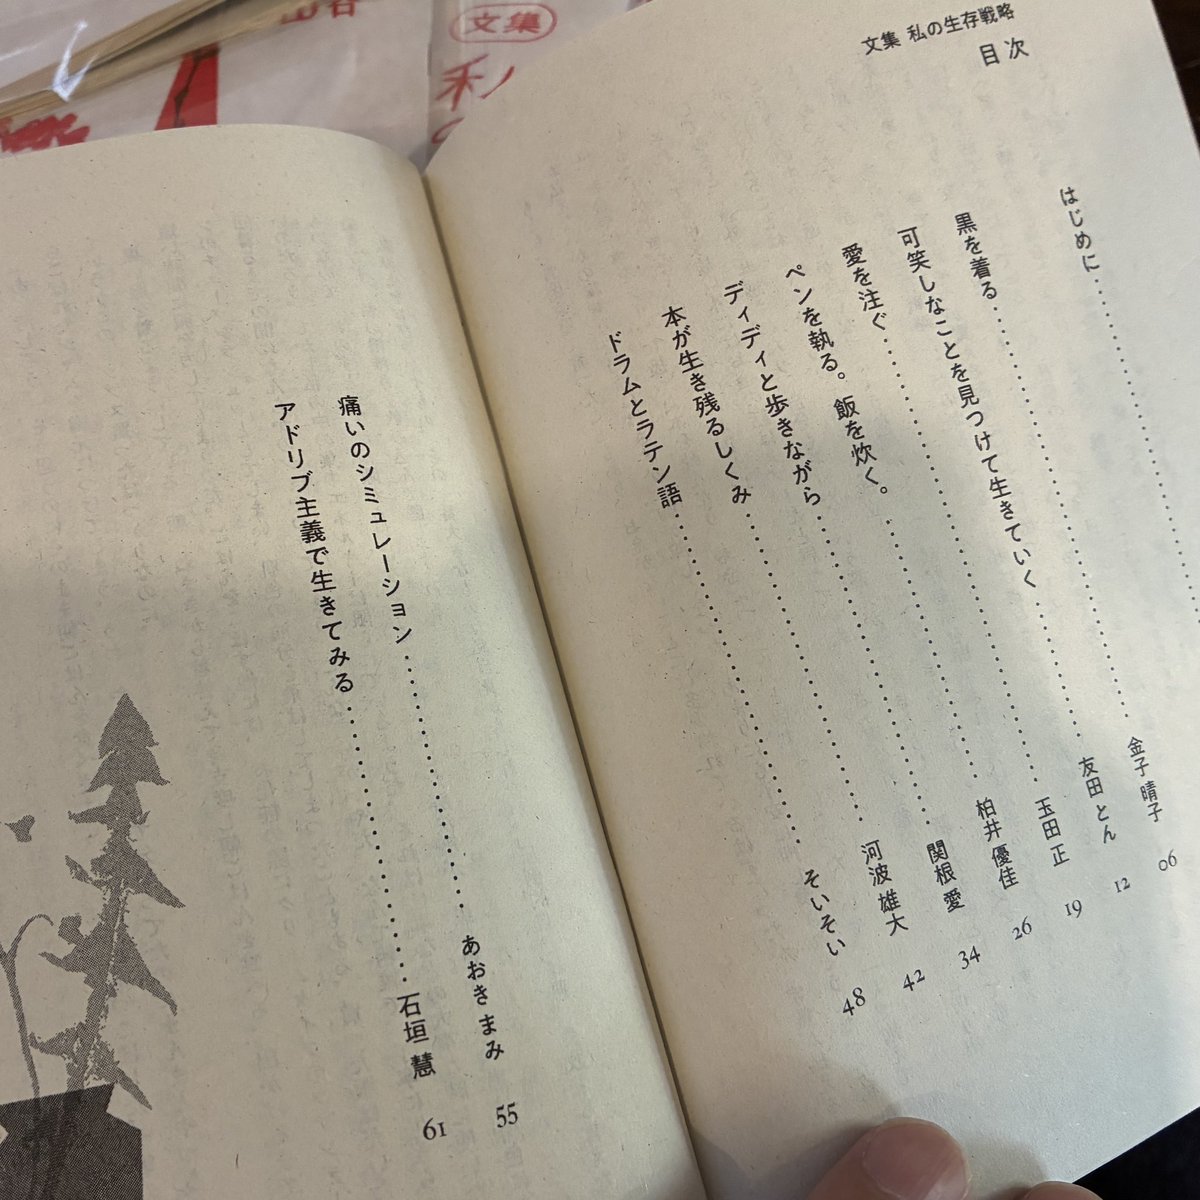 文集
文集 私の生存戦略
目次
はじめに
黒を着る 金子 晴子 06
可笑しなことを見つけて生きていく 友田 とん 12
愛を注ぐ 玉田 正 19
ペンを執る。飯を炊く。 柏井 優佳 26
ディディと歩きながら 関根 愛 34
本が生き残るしくみ 河波 雄大 42
ドラムとラテン語 そいそい 48
痛いのシミュレーション あおき まみ 55
アドリブ主義で生きてみる 石垣 慧 61